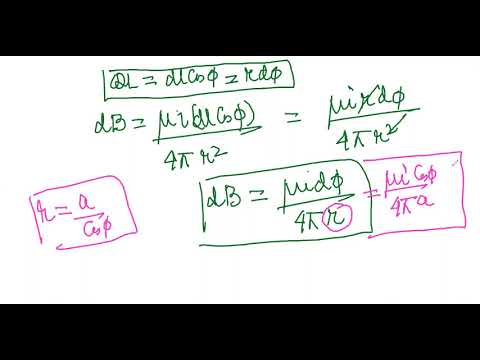 QL = dl Cos φ = r dφ
dB = μi(dl Cos φ) / 4π r² = μi r dφ / 4π r²
r = a / Cos φ
dB = μi dφ / 4π r = μi Cos φ / 4π a